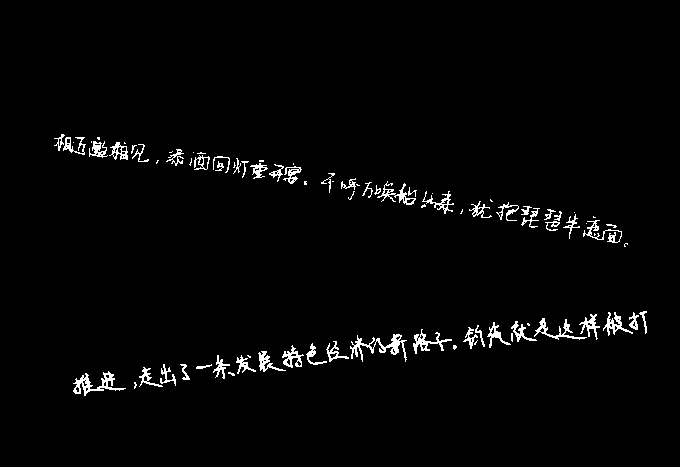 相互邀相见，添酒回灯重开宴。千呼万唤始出来，犹把琵琶半遮面。
推进，走出了一条发展特色经济的新路子。钓鱼就是这样被打